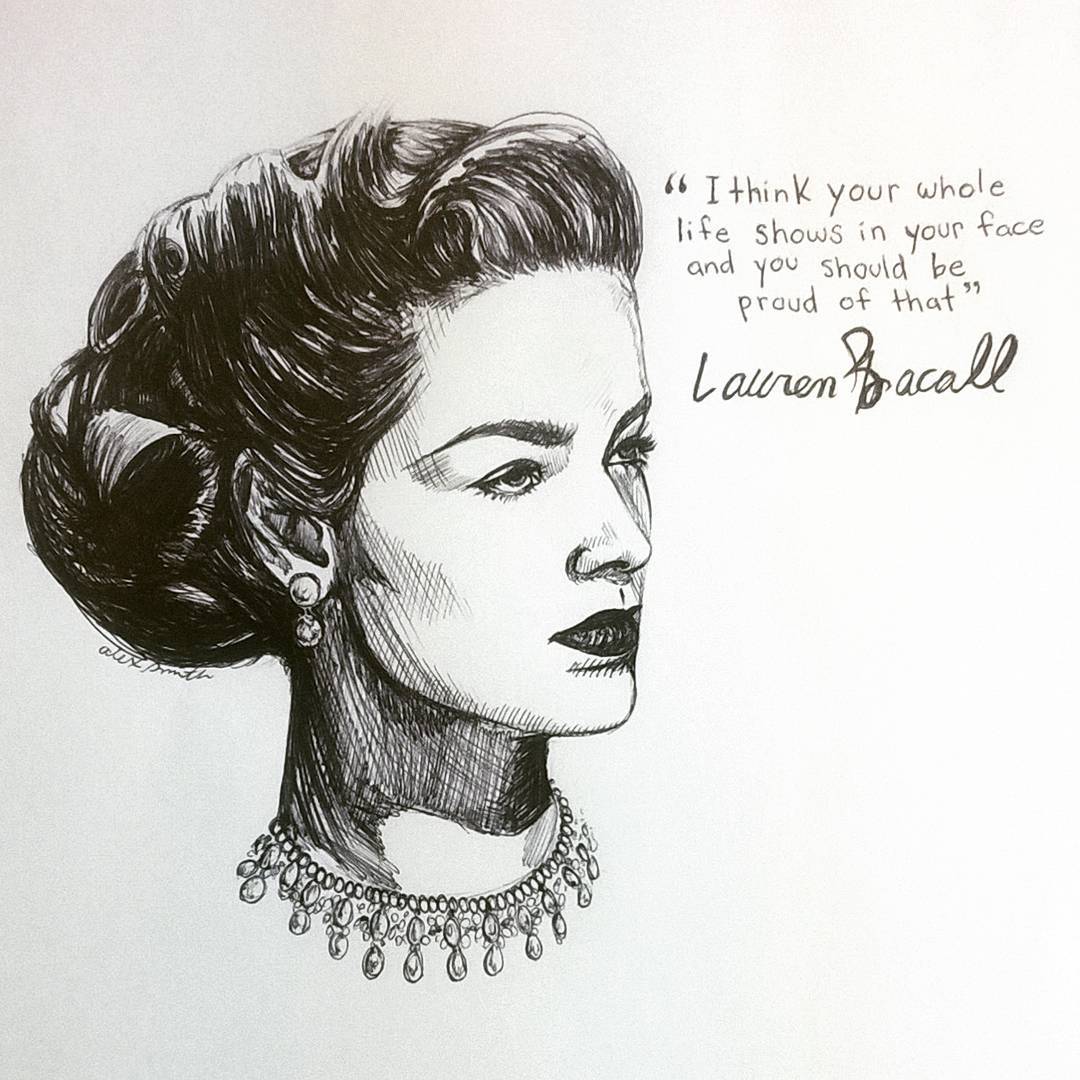 “ I think your whole
life shows in your face
and you should be
proud of that”
Lauren Bacall
alex smith